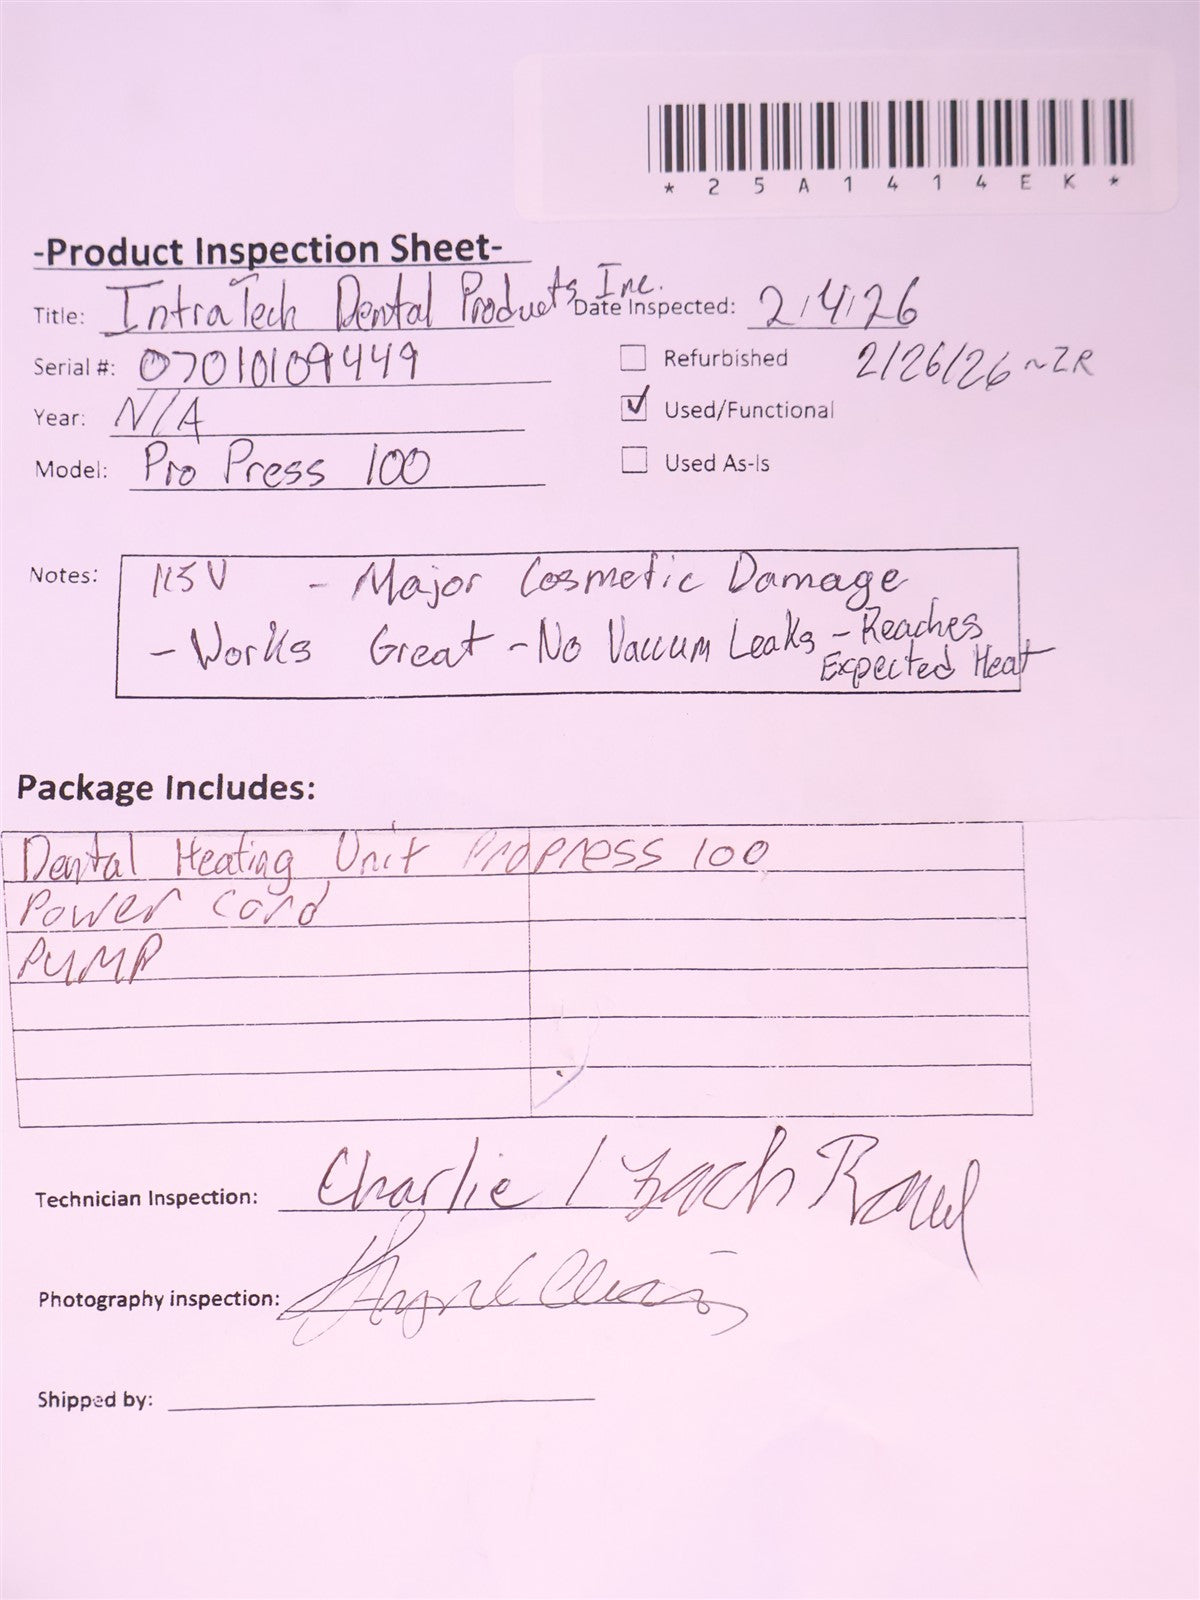 *25A1414EK*
-Product Inspection Sheet-
Title: IntraTech Dental Products Inc.
Date Inspected: 2/4/26
Serial #: 07010109449
Refurbished 2/26/26 ~ZR
Year: N/A
Used/Functional
Model: Pro Press 100
Used As-Is
Notes: 115V - Major Cosmetic Damage
- Works Great - No Vaccum Leaks - Reaches
Expected Heat
Package Includes:
Dental Heating Unit ProPress 100
Power Cord
PUMP
Technician Inspection: Charlie / Zach
Photography inspection:
Shipped by: